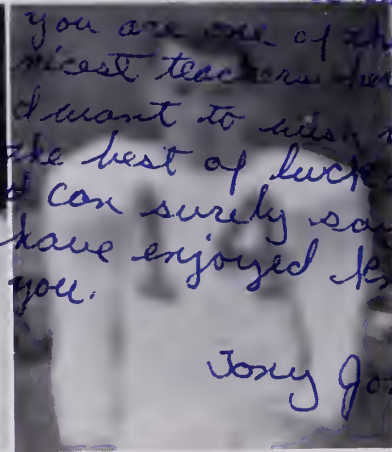 you are one of the
nicest teachers her
I want to wish
the best of luck
I can surely say
have enjoyed kn
you.
14
Tony Jon